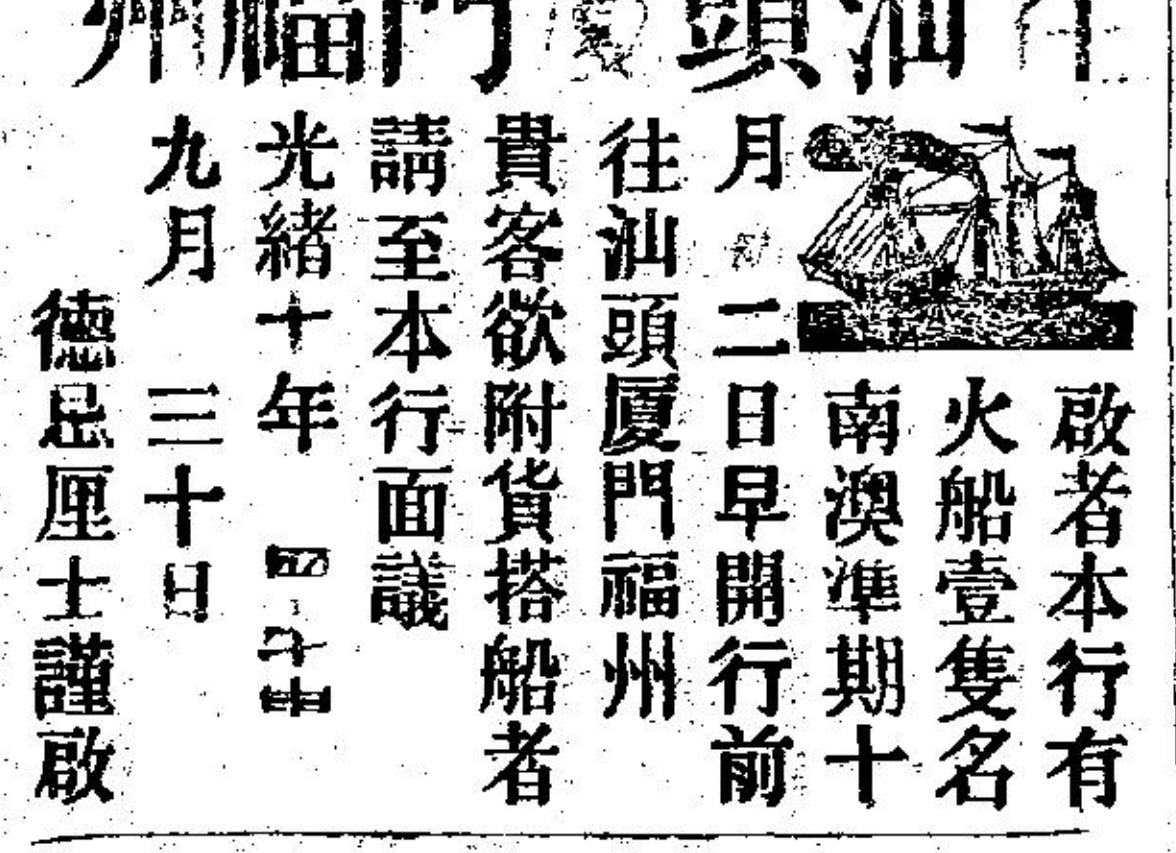 汕頭 門福州
啟者本行有
火船壹隻名
南澳準期十
月 二日早開行前
往汕頭厦門福州
貴客欲附貨搭船者
請至本行面議
光緒十年
九月 三十日
德忌厘士謹啟